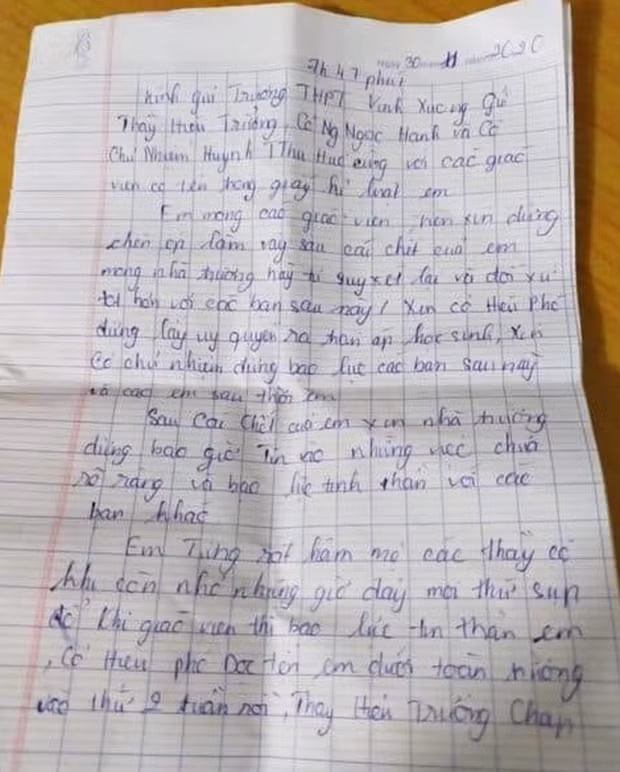 7h 47 phút
30 11 2020
Kính gửi Trường THPT Vĩnh Xương Gửi
Thầy Hiệu Trưởng, Cô Ng Ngọc Hạnh và Cô
Chủ Nhiệm Huỳnh T Thu cùng với các giáo
viên có tên trong giấy kỉ luật em
Em mong các giáo viên, nên xin đừng
chèn ép lắm vậy sau cái chết của em
mong nhà trường hãy suy xét lại và đối xử
tốt hơn với các bạn sau này! Xin cô Hiệu Phó
đừng lấy uy quyền ra chèn áp học sinh, Xin
Cô chủ nhiệm đừng bạo lực các bạn sau này
và các em sau thời em
Sau Cái Chết của em xin nhà trường
đừng bao giờ Tin vào những việc chưa
rõ ràng và bạo lực tinh thần với các
bạn khác
Em Từng rất hâm mộ các thầy cô
khi còn nhỏ nhưng giờ đây mọi thứ sụp
đổ Khi giáo viên thì bạo lực tin thần em
, Cô Hiệu phó Đọc tên em dưới toàn trường
vào thứ 2 tuần rồi, Thầy Hiệu Trưởng Chặn